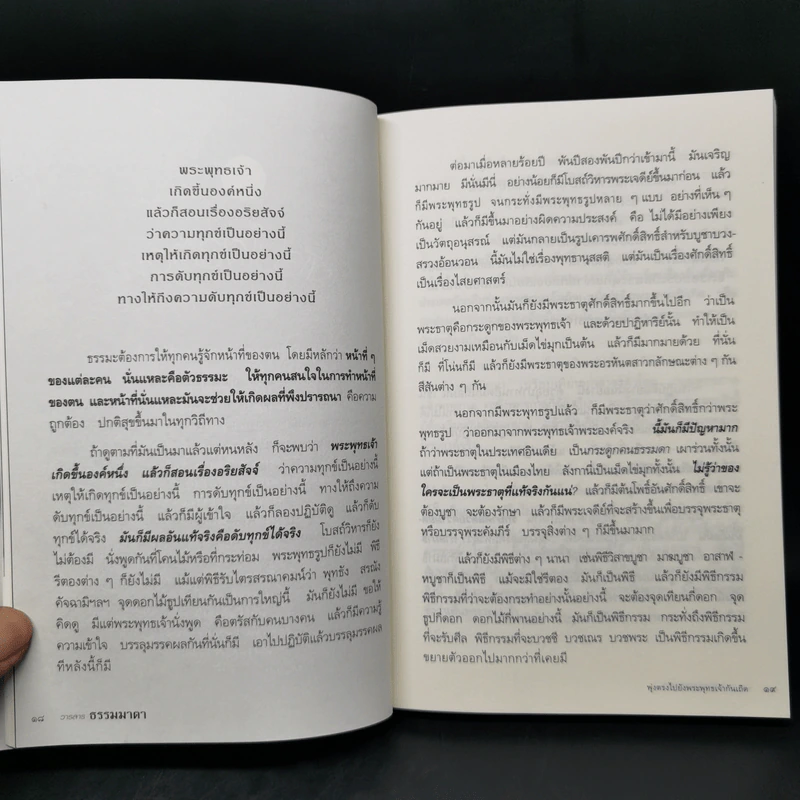 พระพุทธเจ้า
เกิดขึ้นองค์หนึ่ง
แล้วก็สอนเรื่องอริยสัจจ์
ว่าความทุกข์เป็นอย่างนี้
เหตุให้เกิดทุกข์เป็นอย่างนี้
การดับทุกข์เป็นอย่างนี้
ทางให้ถึงความดับทุกข์เป็นอย่างนี้
ธรรมะต้องการให้ทุกคนรู้จักหน้าที่ของตน โดยมีหลักว่า หน้าที่ ๆ
ของแต่ละคน นั่นแหละคือตัวธรรมะ ให้ทุกคนสนใจในการทำหน้าที่
ของตน และหน้าที่นั่นแหละมันจะช่วยให้เกิดผลที่พึงปรารถนา คือความ
ถูกต้อง ปกติสุขขึ้นมาในทุกวิถีทาง
ถ้าดูตามที่มันเป็นมาแล้วแต่หนหลัง ก็จะพบว่า พระพุทธเจ้า
เกิดขึ้นองค์หนึ่ง แล้วก็สอนเรื่องอริยสัจจ์ ว่าความทุกข์เป็นอย่างนี้
เหตุให้เกิดทุกข์เป็นอย่างนี้ การดับทุกข์เป็นอย่างนี้ ทางให้ถึงความ
ดับทุกข์เป็นอย่างนี้ แล้วก็มีผู้เข้าใจ แล้วก็ลองปฏิบัติดู แล้วก็ดับ
ทุกข์ได้จริง มันก็มีผลอันแท้จริงคือดับทุกข์ได้จริง โบสถ์วิหารก็ยัง
ไม่ต้องมี นั่งพูดกันที่โคนไม้หรือที่กระท่อม พระพุทธรูปก็ยังไม่มี พิธี
รีตองต่าง ๆ ก็ยังไม่มี แม้แต่พิธีรับไตรสรณาคมน์ว่า พุทธัง สรณัง
คัจฉามิฯลฯ จุดดอกไม้ธูปเทียนกันเป็นการใหญ่นี้ มันก็ยังไม่มี ขอให้
คิดดู มีแต่พระพุทธเจ้านั่งพูด คือตรัสกับคนบางคน แล้วก็มีความรู้
ความเข้าใจ บรรลุมรรคผลกันที่นั่นก็มี เอาไปปฏิบัติแล้วบรรลุมรรคผล
ทีหลังนี้ก็มี
๑๘ วารสาร ธรรมมาตา
ต่อมาเมื่อหลายร้อยปี พันปีสองพันปีกว่าเข้ามานี้ มันเจริญ
มากมาย มีนั่นมีนี่ อย่างน้อยก็มีโบสถ์วิหารพระเจดีย์ขึ้นมาก่อน แล้ว
ก็มีพระพุทธรูป จนกระทั่งมีพระพุทธรูปหลาย ๆ แบบ อย่างที่เห็น ๆ
กันอยู่ แล้วก็มีขึ้นมาอย่างผิดความประสงค์ คือ ไม่ได้มีอย่างเพียง
เป็นวัตถุอนุสรณ์ แต่มันกลายเป็นรูปเคารพศักดิ์สิทธิ์สำหรับบูชาบวง-
สรวงอ้อนวอน นี้มันไม่ใช่เรื่องพุทธานุสสติ แต่มันเป็นเรื่องศักดิ์สิทธิ์
เป็นเรื่องไสยศาสตร์
นอกจากนั้นมันก็ยังมีพระธาตุศักดิ์สิทธิ์มากขึ้นไปอีก ว่าเป็น
พระธาตุคือกระดูกของพระพุทธเจ้า และด้วยปาฏิหาริย์นั้น ทำให้เป็น
เม็ดสวยงามเหมือนกับเม็ดไข่มุกเป็นต้น แล้วก็มีมากมายด้วย ที่นั่น
ก็มี ที่โน่นก็มี แล้วก็ยังมีพระธาตุของพระอรหันตสาวกลักษณะต่าง ๆ กัน
สีสันต่าง ๆ กัน
นอกจากมีพระพุทธรูปแล้ว ก็มีพระธาตุว่าศักดิ์สิทธิ์กว่าพระ
พุทธรูป ว่าออกมาจากพระพุทธเจ้าพระองค์จริง นี้มันก็มีปัญหามาก
ถ้าว่าพระธาตุในประเทศอินเดีย เป็นกระดูกคนธรรมดา เผาร่วงทั้งนั้น
แต่ถ้าเป็นพระธาตุในเมืองไทย ลังกานี้เป็นเม็ดไข่มุกทั้งนั้น ไม่รู้ว่าของ
ใครจะเป็นพระธาตุที่แท้จริงกันแน่? แล้วก็มีต้นโพธิ์อันศักดิ์สิทธิ์ เขาจะ
ต้องบูชา จะต้องรักษา แล้วก็มีพระเจดีย์ที่จะสร้างขึ้นเพื่อบรรจุพระธาตุ
หรือบรรจุพระคัมภีร์ บรรจุสิ่งต่าง ๆ ก็มีขึ้นมามาก
แล้วก็ยังมีพิธีต่าง ๆ นานา เช่นพิธีวิสาขบูชา มาฆบูชา อาสาฬ-
หบูชาก็เป็นพิธี แม้จะมิใช่รีตอง มันก็เป็นพิธี แล้วก็ยังมีพิธีกรรม
พิธีกรรมที่ว่าจะต้องกระทำอย่างนั้นอย่างนี้ จะต้องจุดเทียนกี่ดอก จุด
ธูปกี่ดอก ดอกไม้กี่พานอย่างนี้ มันก็เป็นพิธีกรรม กระทั่งถึงพิธีกรรม
ที่จะรับศีล พิธีกรรมที่จะบวชชี บวชเณร บวชพระ เป็นพิธีกรรมเกิดขึ้น
ขยายตัวออกไปมากกว่าที่เคยมี
พุ่งตรงไปยังพระพุทธเจ้ากันเถิด ๑๙